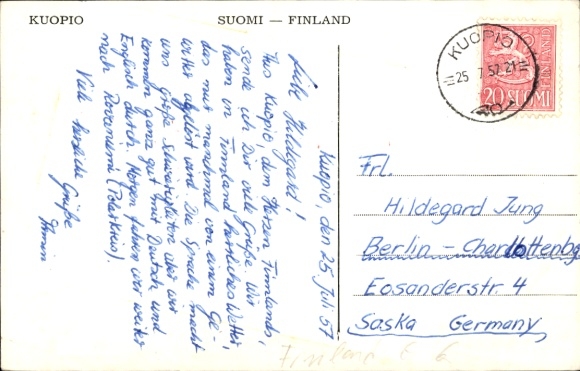 KUOPIO
SUOMI — FINLAND
KUOPIO
25. 7.57.21
SUOMI FINLAND
20 SUOMI
Kuopio, den 25. Juli 57
Liebe Hildegard!
Aus Kuopio, dem Herzen Finnlands,
sende ich Dir viele Grüße. Wir
haben in Finnland herrliches Wetter,
das nur manchmal von einem Ge-
witter abgelöst wird. Die Sprache macht
uns große Schwierigkeiten aber wir
kommen ganz gut mit Deutsch und
Englisch durch. Morgen fahren wir weiter
nach Rovaniemi (Polarkreis).
Viele herzliche
Grüße
Armin
Frl.
Hildegard Jung
Berlin - Charlottenbg
Eosanderstr. 4
Saska Germany
Finland